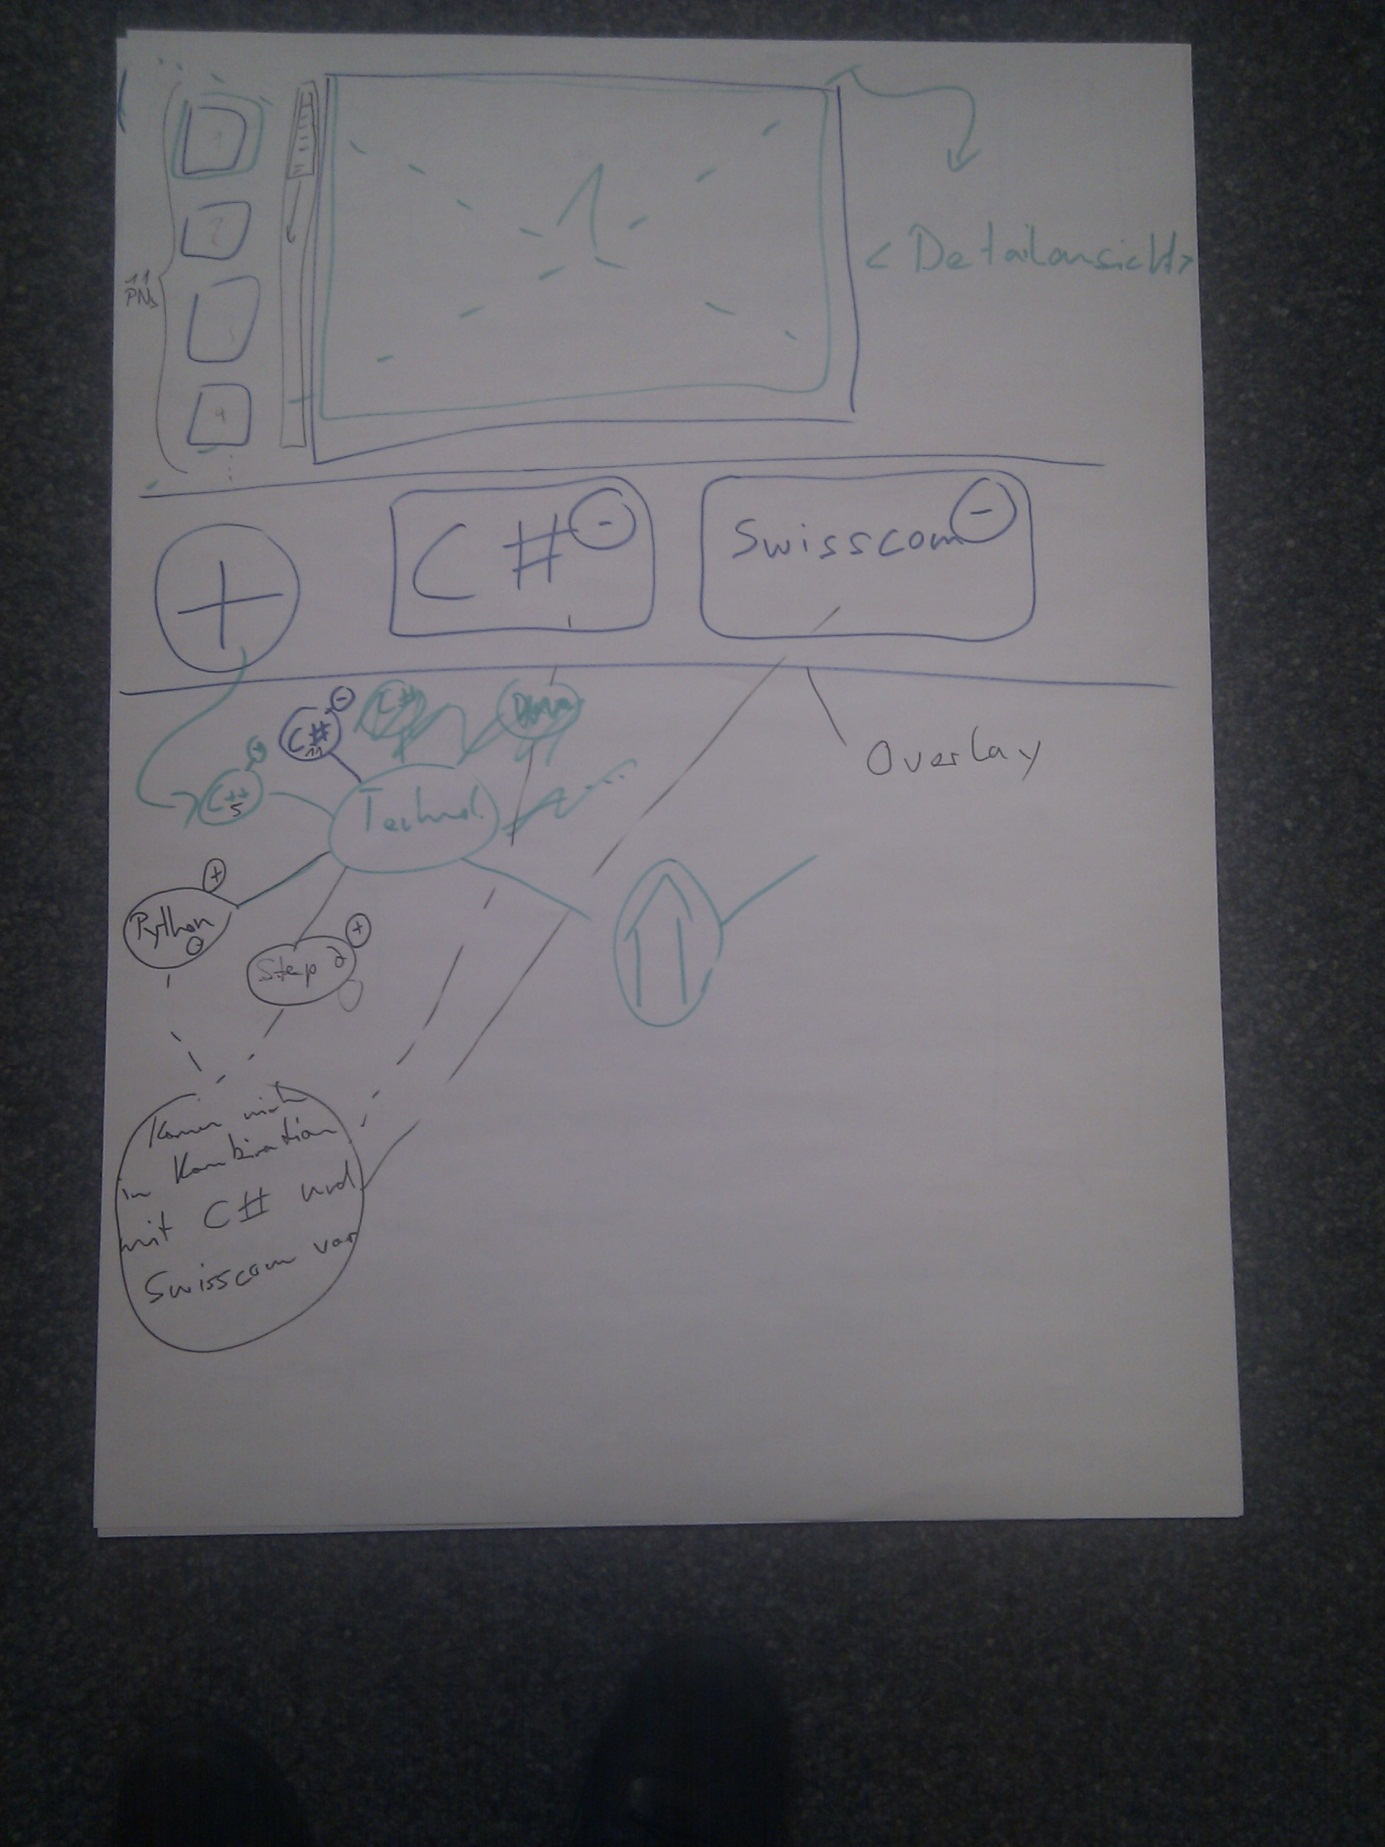 1
2
3
4
11
PNs
1
< Detailansicht >
+
C# -
Swisscom -
C#
11
-
C#
C++
5
Technol.
Overlay
Python
0
+
Step 2
+
Kann nicht
in Kombination
mit C# und
Swisscom vor